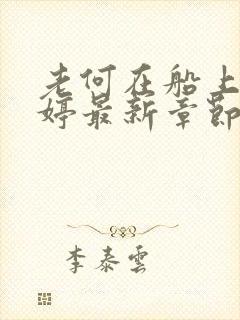 老何在船上
婷最新章節
李泰雲